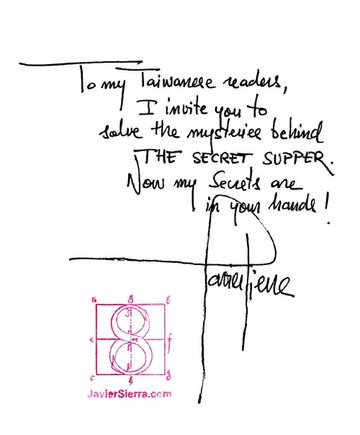 To my Taiwanese readers,
I invite you to
solve the mysteries behind
THE SECRET SUPPER.
Now my Secrets are
in your hands!
JavierSierra.com